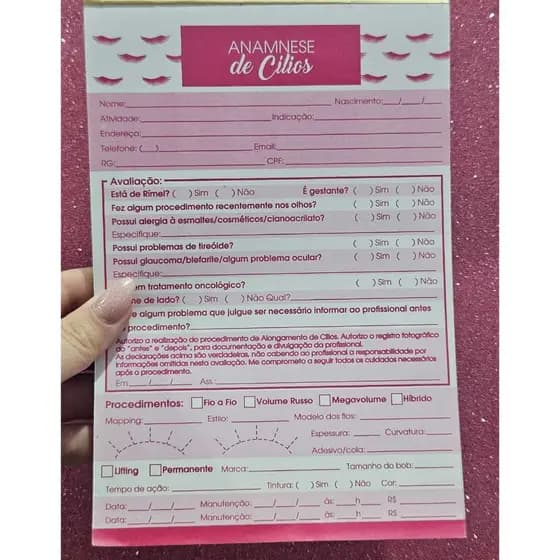 ANAMNESE
de Cílios
Nome: Nascimento: / /
Atividade: Indicação:
Endereço:
Telefone: ( ) Email:
RG: CPF:
Avaliação:
Está de Rímel? ( ) Sim ( ) Não É gestante? ( ) Sim ( ) Não
Fez algum procedimento recentemente nos olhos? ( ) Sim ( ) Não
Possui alergia à esmaltes/cosméticos/cianoacrilato? ( ) Sim ( ) Não
Especifique:
Possui problemas de tireóide? ( ) Sim ( ) Não
Possui glaucoma/blefarite/algum problema ocular? ( ) Sim ( ) Não
Especifique:
em tratamento oncológico? ( ) Sim ( ) Não
me de lado? ( ) Sim ( ) Não Qual?
e algum problema que julgue ser necessário informar ao profissional antes
procedimento?
Autorizo a realização do procedimento de Alongamento de Cílios. Autorizo o registro fotográfico
do "antes" e "depois", para documentação e divulgação do profissional.
As declarações acima são verdadeiras, não cabendo ao profissional a responsabilidade por
informações omitidas nesta avaliação. Me comprometo a seguir todos os cuidados necessários
após o procedimento.
Em / / Ass.:
Procedimentos: Fio a Fio Volume Russo Megavolume Híbrido
Mapping: Estilo: Modelo dos fios:
Espessura: Curvatura:
Adesivo/cola:
Lifting Permanente Marca: Tamanho do bob:
Tempo de ação: Tintura: ( ) Sim ( ) Não Cor:
Data: / / Manutenção: / / às: h R$
Data: / / Manutenção: / / às: h R$